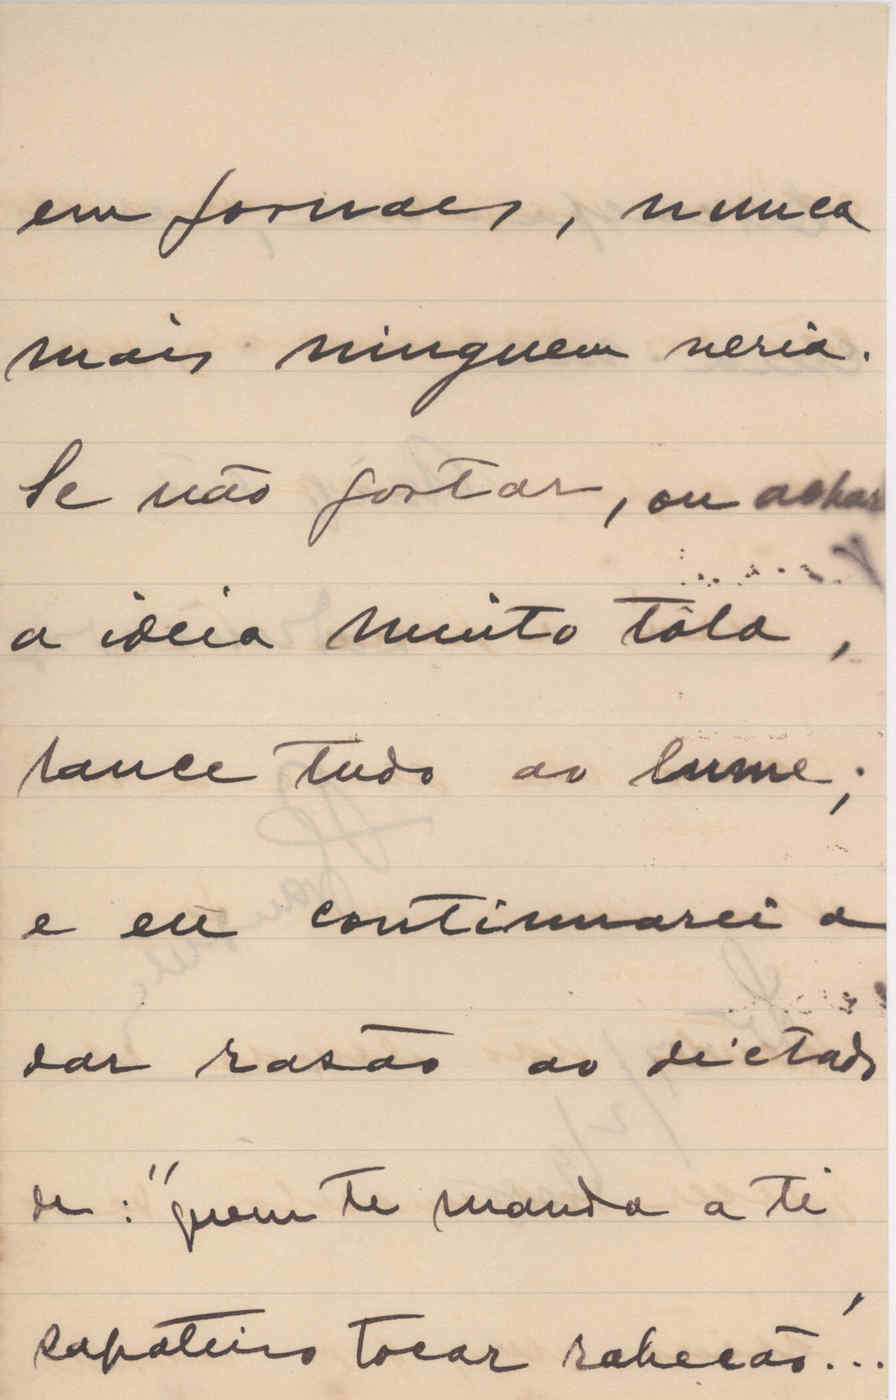 em jornaes, nunca
mais ninguem veria.
Se não gostar, ou achar
a ideia muito tôla,
lance tudo ao lume;
e eu continuarei a
dar rasão ao dictado
de: "quem te manda a ti
sapateiro tocar rabecão!...